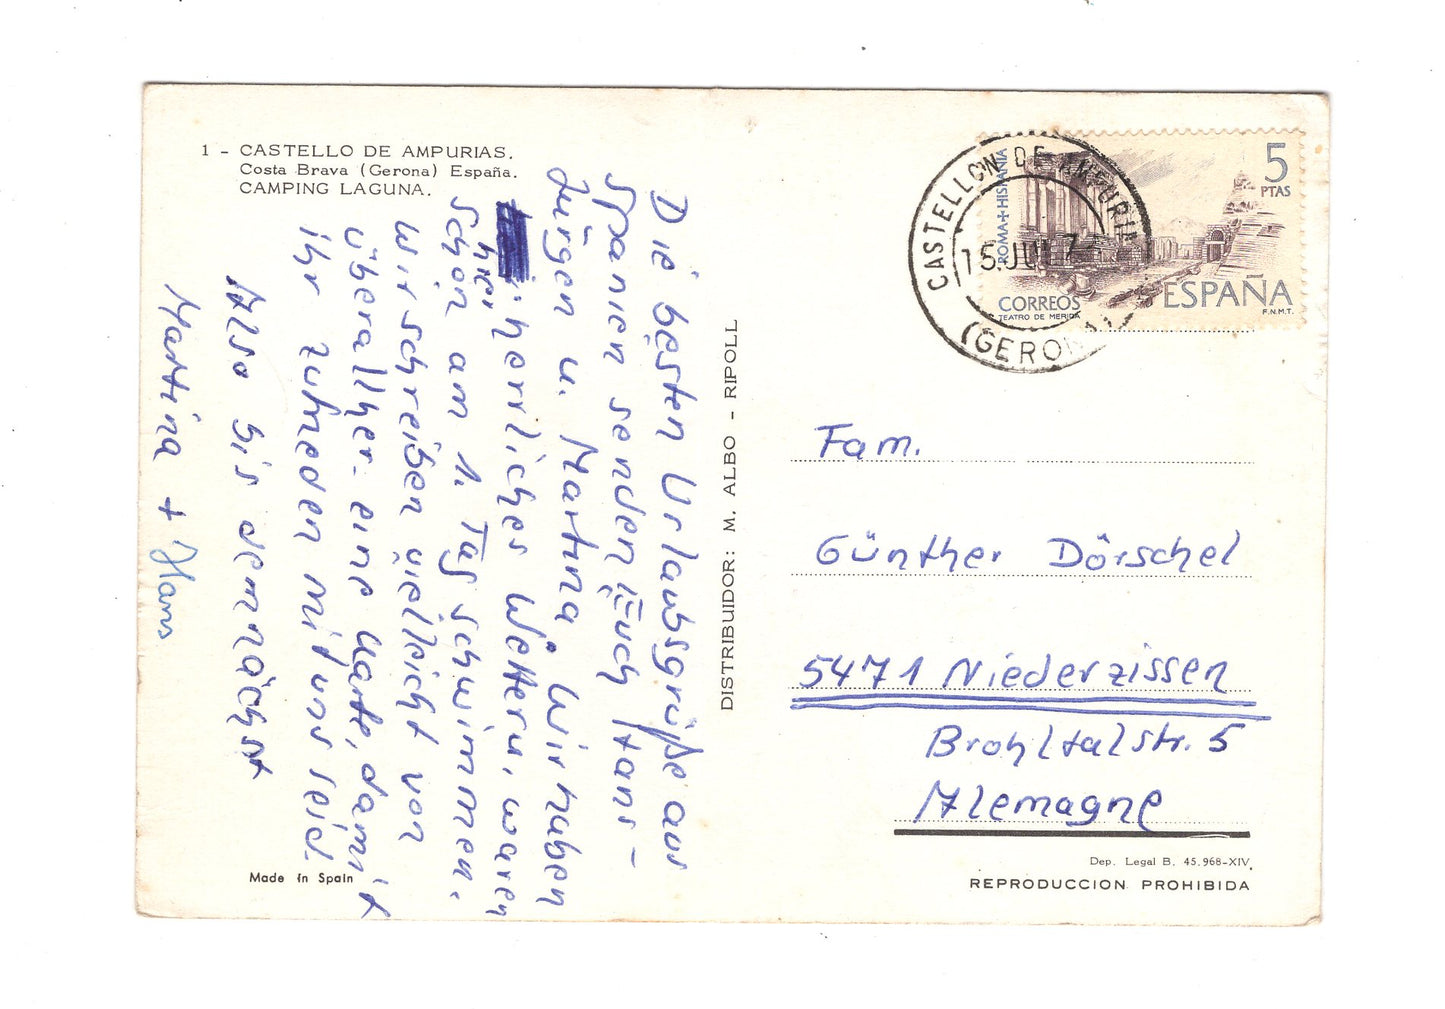 1 - CASTELLO DE AMPURIAS.
Costa Brava (Gerona) España.
CAMPING LAGUNA.
Die besten Urlaubsgrüße aus
Spanien senden Euch Hans-
Jürgen u. Martina. Wir haben
hier herrliches Wetter u. waren
schon am 1. Tag schwimmen.
Wir schreiben vielleicht von
überallher eine Karte, damit
ihr zufrieden mit uns seid.
Also bis demnächst
Martina + Hans
Made in Spain
DISTRIBUIDOR: M. ALBO - RIPOLL
CASTELLON DE AMPURIAS
15. JUL 7
(GERONA)
ROMA + HISPANIA
5
PTAS
CORREOS
TEATRO DE MERIDA
ESPAÑA
F.N.M.T.
Fam.
Günther Dörschel
5471 Niederzissen
Brohltalstr. 5
Alemagne
Dep. Legal B. 45.968-XIV
REPRODUCCION PROHIBIDA